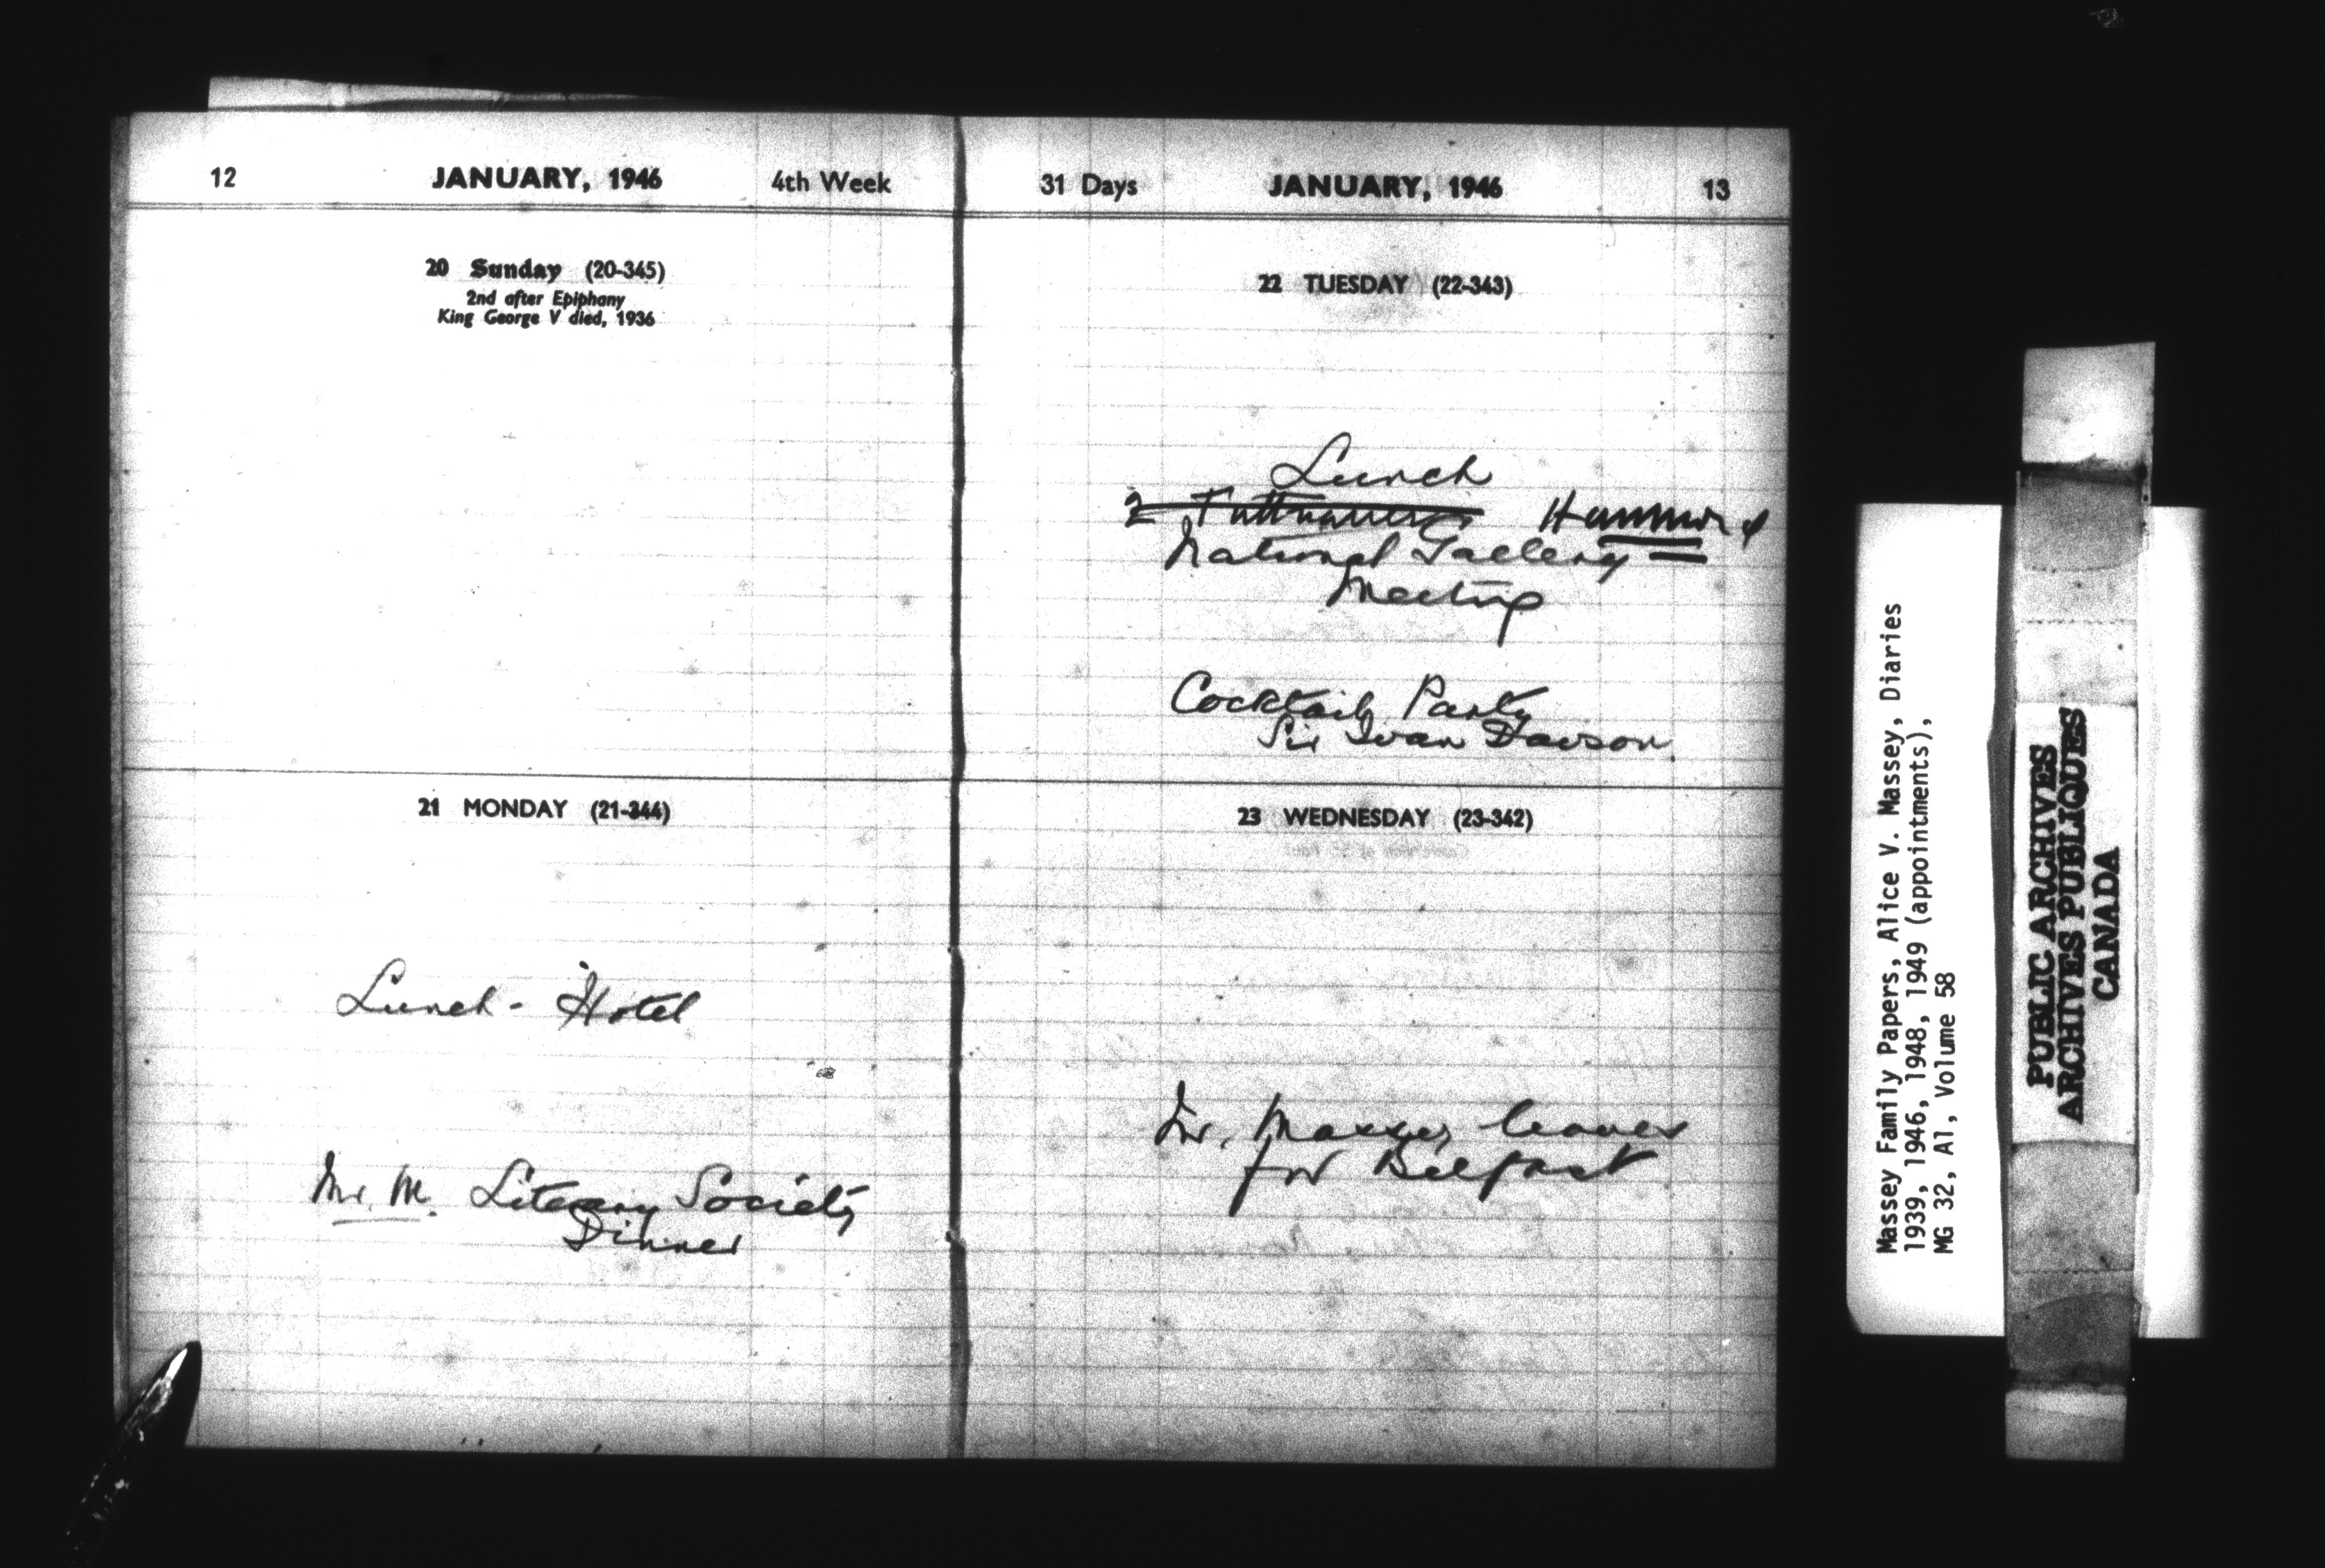 12 JANUARY, 1946 4th Week
20 Sunday (20-345)
2nd after Epiphany
King George V died, 1936
21 MONDAY (21-344)
Lunch - Hotel
Mr. M. Literary Society
Dinner
31 Days JANUARY, 1946 13
22 TUESDAY (22-343)
Lunch
2
National Gallery
Meeting
Cocktail Party
Sir Ivan Davson
23 WEDNESDAY (23-342)
Mr. Massey leaves
for Belfast
Massey Family Papers, Alice V. Massey, Diaries
1939, 1946, 1948, 1949 (appointments),
MG 32, A1, Volume 58
PUBLIC ARCHIVES
ARCHIVES PUBLIQUES
CANADA